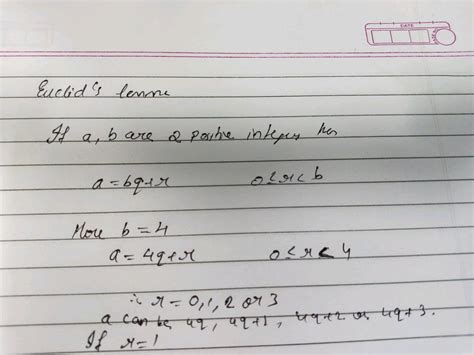 DATE
Euclid's lemma
If a, b are 2 positive integers then
a = bq+r 0 ≤ r < b
Here b = 4
a = 4q+r 0 ≤ r < 4
∴ r = 0, 1, 2 or 3
a can be 4q, 4q+1, 4q+2 or 4q+3.
If r = 1